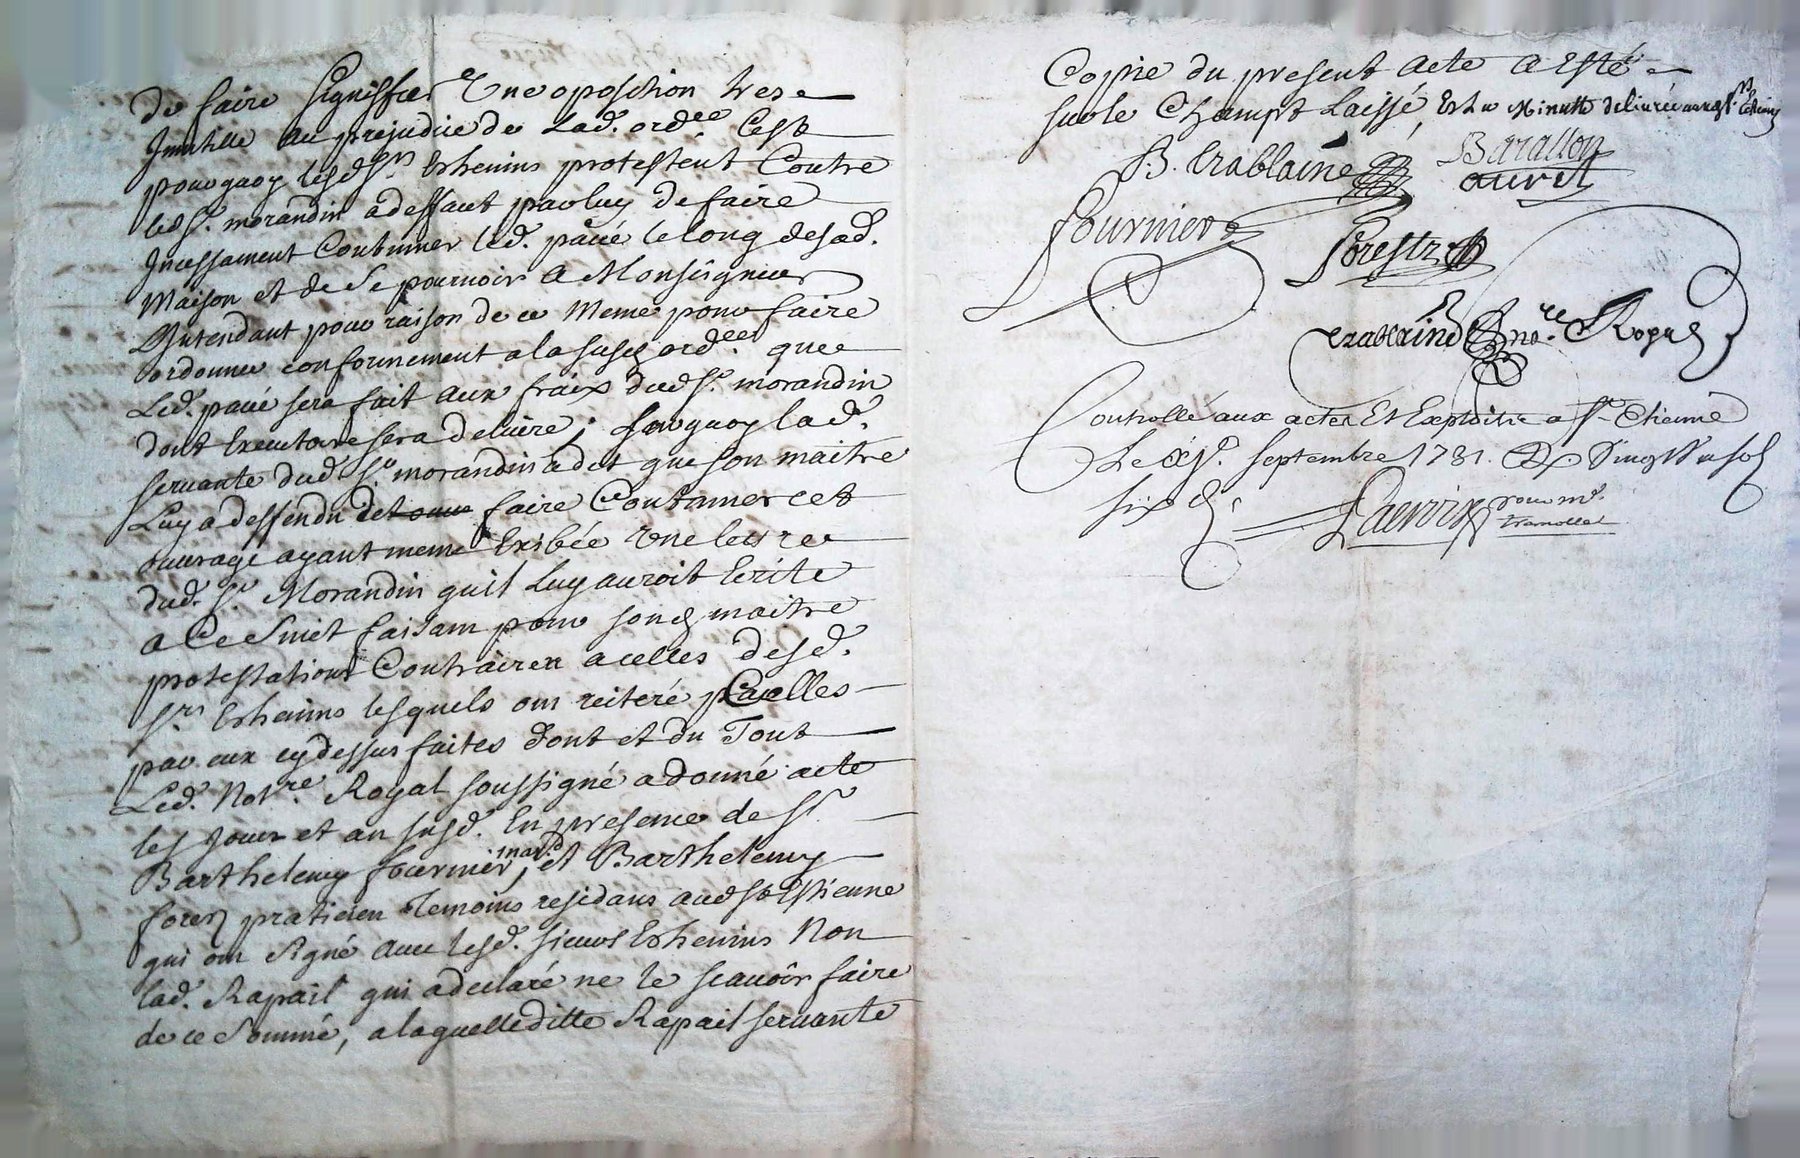 de faire signiffier Une oposition tres
Inutille au prejudice de Lad. ordce. C'est
pourquoy lesd. Srs. Eschevins protestent Contre
led. Sr. morandin adeffaut par luy de faire
Incessament Continuer led. pavé le long desad.
Maison et de Se pourvoir a Monseigneur
Intendant pour raison de ce Meme pour faire
ordonner conformement a la susd. ordce. que
Led. pavé sera fait aux fraix dud. Sr. morandin
dont Executoire sera delivré; surquoy lad.
servante dud. Sr. morandin a dit que son maitre
Luy a deffendu de faire Continuer cet
ouvrage ayant meme Exibée Une lettre
dud. Sr. Morandin qu'il Luy auroit Ecrite
a Ce Sujet faisant pour sond. maitre
protestations Contraires a celles desd.
Srs. Eschevins lesquels ont reiteré Celles
par eux cy dessus faites dont et du Tout
Led. Notre. Royal soussigné a donné acte
les Jour et an susd. En presence de Sr.
Barthelemy fournier, mar.d et Barthelemy
forest praticien temoins residans aud. St Estienne
qui ont Signé avec lesd. sieurs Eschevins Non
lad. Rapail qui a declaré ne le scavoir faire
de ce Sommé, a laquelle ditte Rapail servante
Copie du present acte a Esté
sur le Champt Laissé, Et la Minutte delivrée auxd. Srs. Echevins
B. Trablaine Barallon
auvet
fournier
forest
Trablaine Nore. Royal
Controllé aux actes Et Exploits a St. Etienne
Le septembre 1731. Rx. Vingt sols
six d.
Lacroix pour Mr.
tramollet